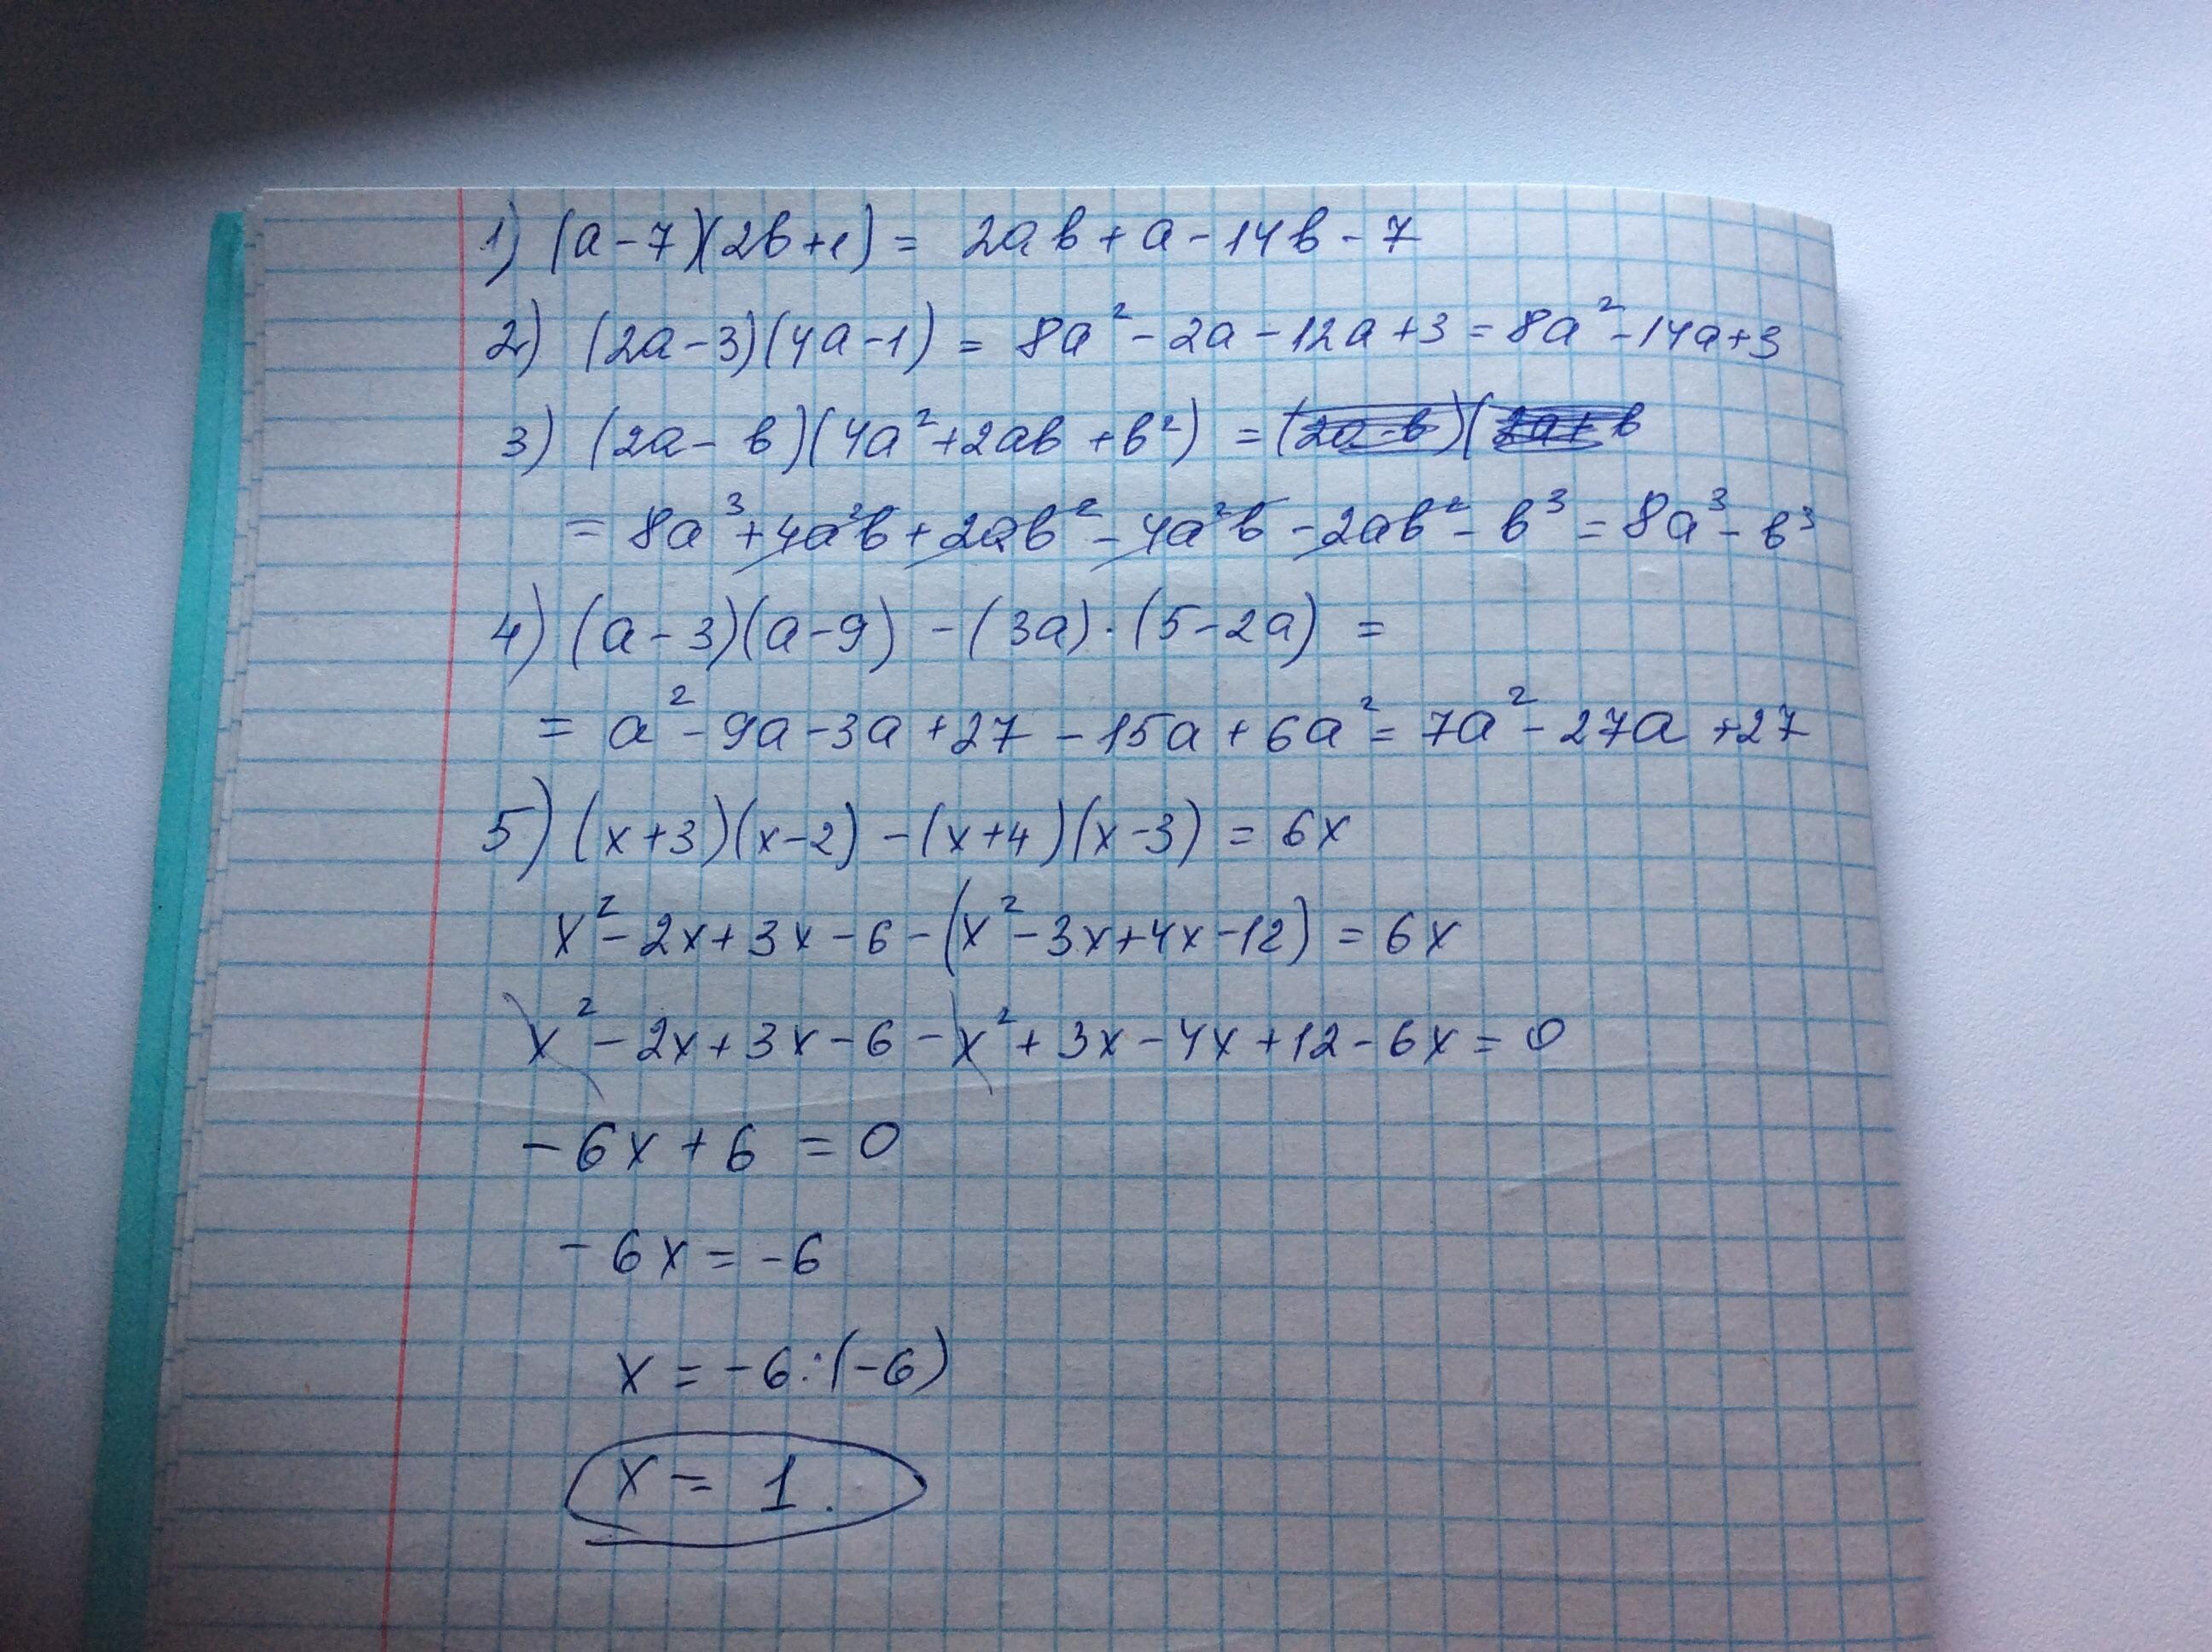 1) (a-7)(2b+1) = 2ab+a-14b-7
2) (2a-3)(4a-1) = 8a²-2a-12a+3=8a²-14a+3
3) (2a-b)(4a²+2ab+b²) = (2a-b)(2a+b
= 8a³+4a²b+2ab²-4a²b-2ab²-b³=8a³-b³
4) (a-3)(a-9) -(3a)·(5-2a) =
= a²-9a-3a+27-15a+6a²=7a²-27a+27
5) (x+3)(x-2)-(x+4)(x-3) = 6x
x²-2x+3x-6-(x²-3x+4x-12) = 6x
x²-2x+3x-6-x²+3x-4x+12-6x=0
-6x+6=0
-6x=-6
x=-6:(-6)
x=1.